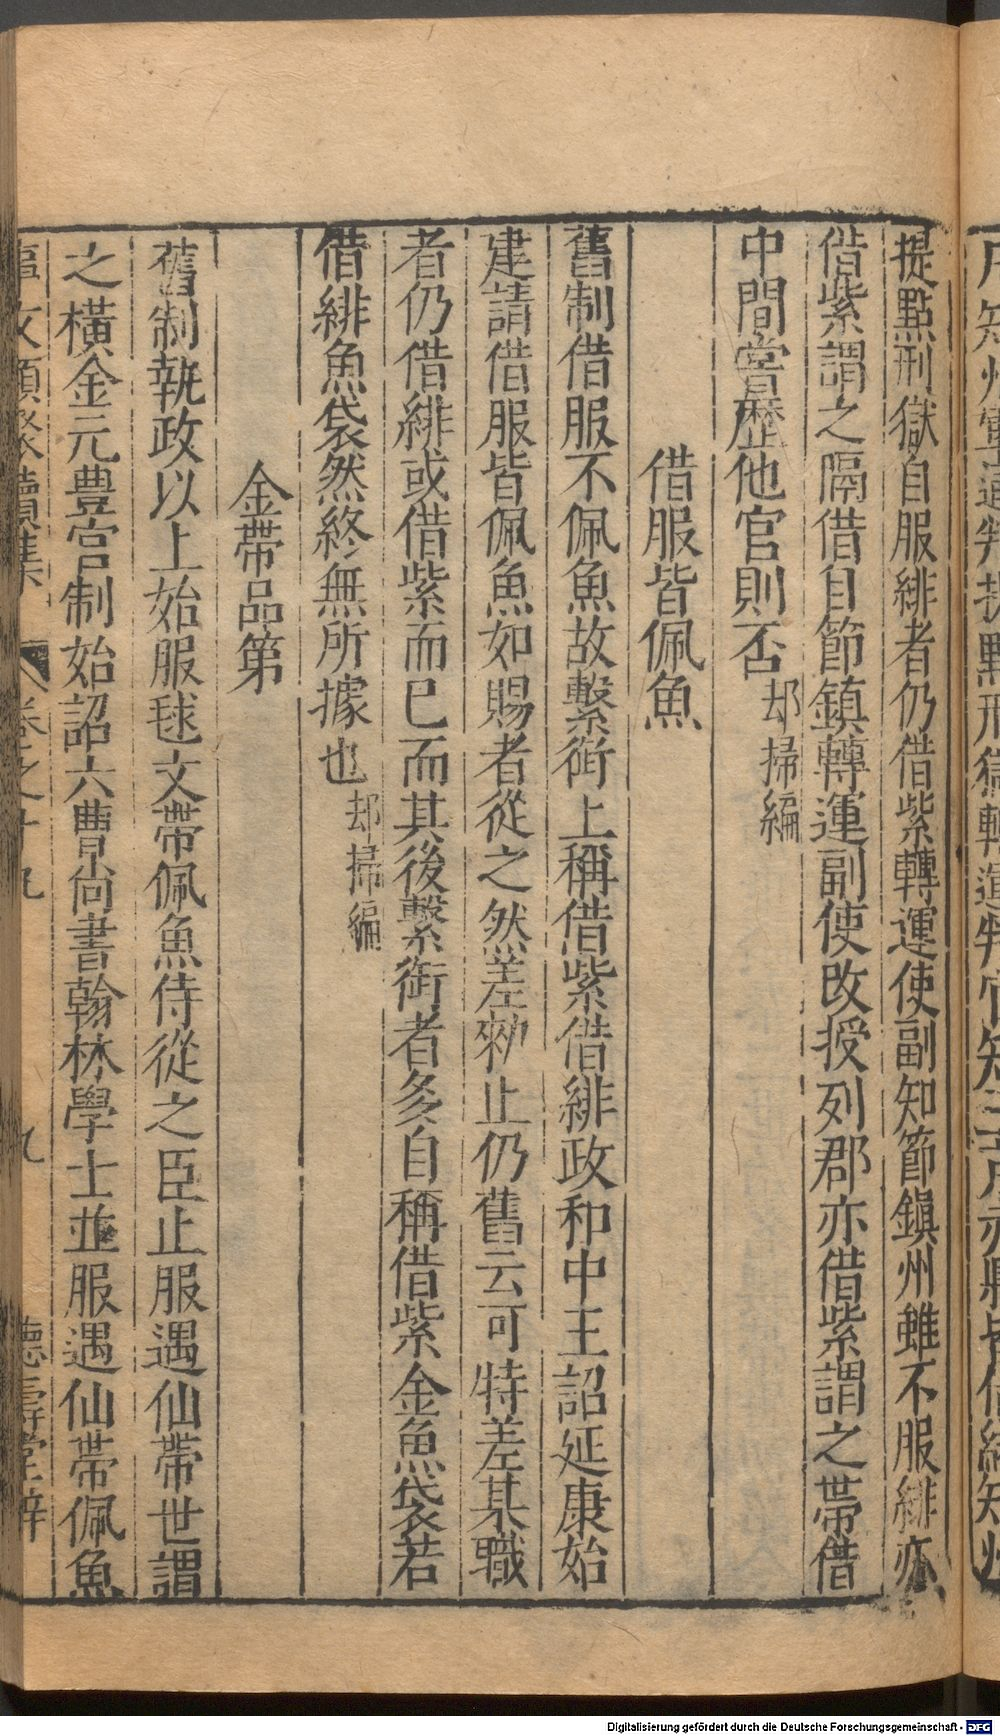 提點刑獄自服緋者仍借紫轉運使副知節鎮州雖不服緋亦
借紫謂之隔借自節鎮轉運副使改授列郡亦借紫謂之帶借
中間嘗歷他官則否却掃編
借服皆佩魚
舊制借服不佩魚故繫銜上稱借紫借緋政和中王詔延康始
建請借服皆佩魚如賜者從之然差勑止仍舊云可特差某職
者仍借緋或借紫而已而其後繫銜者多自稱借紫金魚袋若
借緋魚袋然終無所據也却掃編
金帶品第
舊制執政以上始服毬文帶佩魚侍從之臣止服遇仙帶世謂
之橫金元豊官制始詔六曹尚書翰林學士並服遇仙帶佩魚
卷之十九
九
德壽堂梓
Digitalisierung gefördert durch die Deutsche Forschungsgemeinschaft - DFG